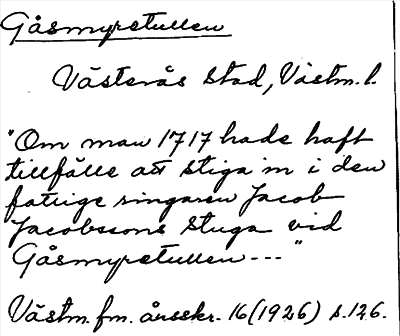 Gåsmyrstullen
Västerås stad, Västm. l.
"Om man 1717 hade haft
tillfälle att stiga in i den
fattige ringaren Jacob
Jacobssons stuga vid
Gåsmyrstullen ---"
Västm. fm. årsskr. 16 (1926) s. 126.